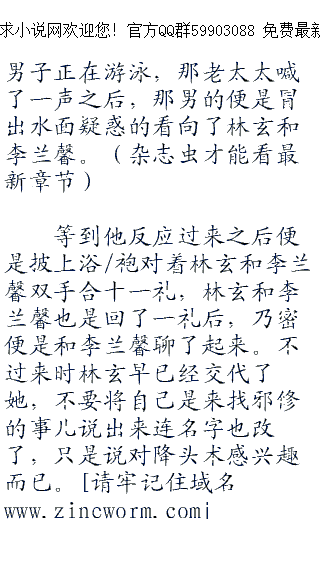 求小说网欢迎您! 官方QQ群59903088 免费最新
男子正在游泳，那老太太喊
了一声之后，那男的便是冒
出水面疑惑的看向了林玄和
李兰馨。（杂志虫才能看最
新章节）
等到他反应过来之后便
是披上浴/袍对着林玄和李兰
馨双手合十一礼，林玄和李
兰馨也是回了一礼后，乃密
便是和李兰馨聊了起来。不
过来时林玄早已经交代了
她，不要将自己是来找邪修
的事儿说出来连名字也改
了，只是说对降头术感兴趣
而已。[请牢记住域名
www.zincworm.com|